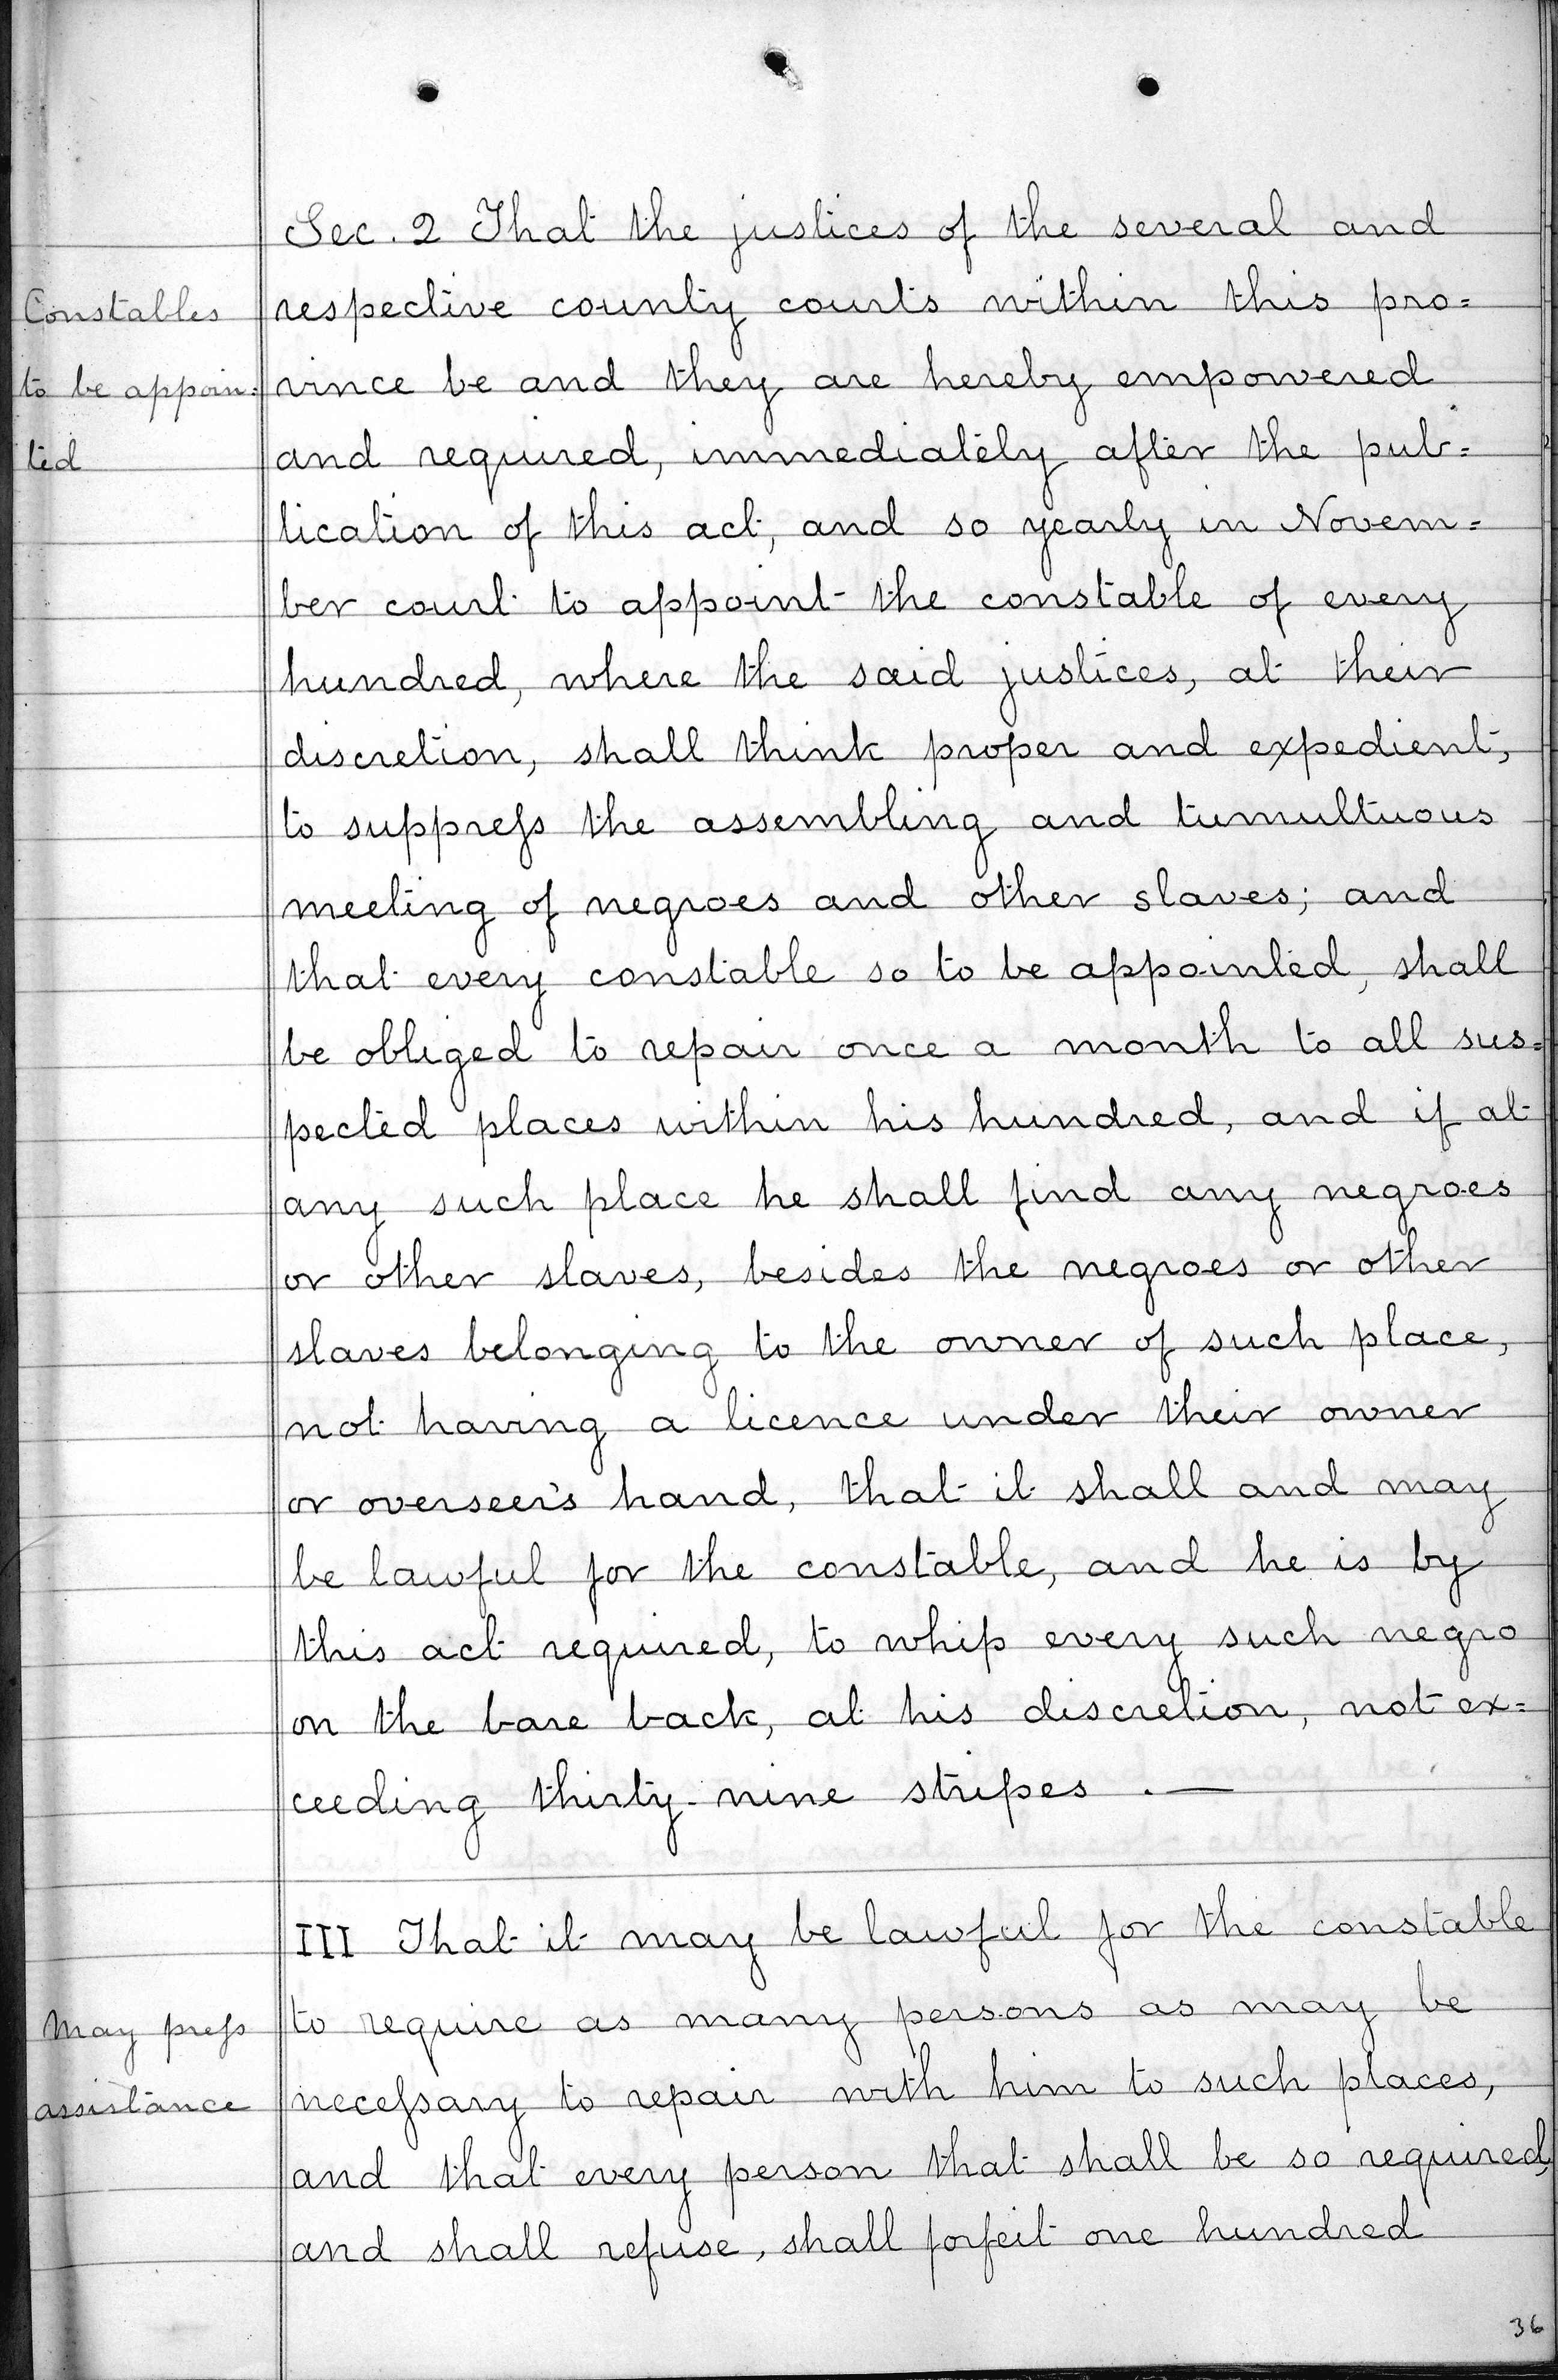 Sec. 2 That the justices of the several and
Constables
respective county courts within this pro=
to be appoin=
vince be and they are hereby empowered
ted
and required, immediately after the pub=
lication of this act, and so yearly in Novem=
ber court to appoint the constable of every
hundred, where the said justices, at their
discretion, shall think proper and expedient,
to suppreſs the assembling and tumultuous
meeting of negroes and other slaves; and
that every constable so to be appointed, shall
be obliged to repair once a month to all sus=
pected places within his hundred, and if at
any such place he shall find any negroes
or other slaves, besides the negroes or other
slaves belonging to the owner of such place,
not having a licence under their owner
or overseer's hand, that it shall and may
be lawful for the constable, and he is by
this act required, to whip every such negro
on the bare back, at his discretion, not ex=
ceeding thirty-nine stripes . —
III That it may be lawful for the constable
May preſs
to require as many persons as may be
assistance
neceſsary to repair with him to such places,
and that every person that shall be so required,
and shall refuse, shall forfeit one hundred
36